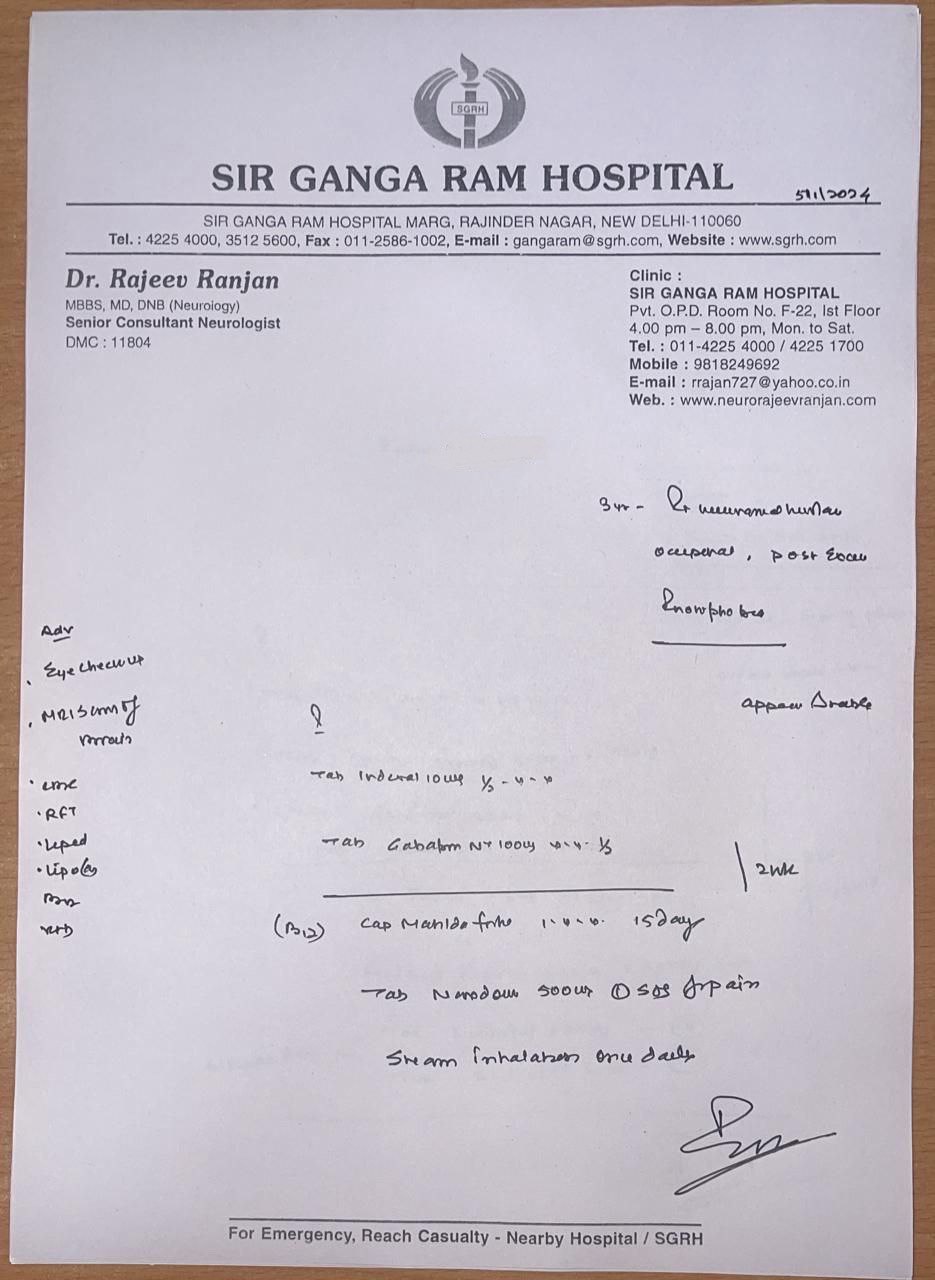 SGRH
SIR GANGA RAM HOSPITAL
5/1/2024
SIR GANGA RAM HOSPITAL MARG, RAJINDER NAGAR, NEW DELHI-110060
Tel. : 4225 4000, 3512 5600, Fax : 011-2586-1002, E-mail : gangaram@sgrh.com, Website : www.sgrh.com
Dr. Rajeev Ranjan
MBBS, MD, DNB (Neurology)
Senior Consultant Neurologist
DMC : 11804
Clinic :
SIR GANGA RAM HOSPITAL
Pvt. O.P.D. Room No. F-22, Ist Floor
4.00 pm – 8.00 pm, Mon. to Sat.
Tel. : 011-4225 4000 / 4225 1700
Mobile : 9818249692
E-mail : rrajan727@yahoo.co.in
Web. : www.neurorajeevranjan.com
3 yr - Rt
occipital, post
Adv
Eye Checkup
MRI Scan of
Brain
RFT
B12
Tab Inderal 10mg 1/2
Tab Gabator NT 100mg 1/2
2 WK
(B12) Cap 15 day
Tab 500mg 1 SOS for pain
Steam Inhalation once daily
For Emergency, Reach Casualty - Nearby Hospital / SGRH